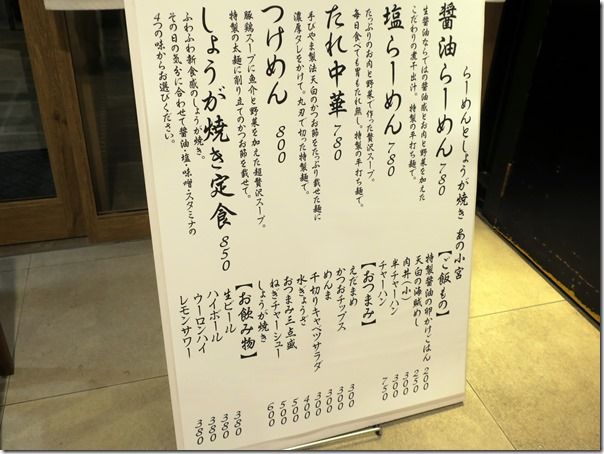 らーめんとしょうが焼き あの小宮
醤油らーめん 780
生醤油ならではの醤油感とお肉と野菜を加えた
こだわりの煮干出汁。特製の平打ち麺で。
塩らーめん 780
たっぷりのお肉と野菜で作った贅沢スープ。
毎日食べても胃もたれ無し。特製の平打ち麺で。
たれ中華 780
手びやま製法天白のかつお節をたっぷり載せた麺に
濃厚タレをかけて。丸刃で切った特製麺で。
つけめん 800
豚鶏スープに魚介と野菜を加えた超贅沢スープ。
特製の太麺に削り立てのかつお節を載せて。
しょうが焼き定食 850
ふわふわ新食感のしょうが焼き。
その日の気分に合わせて醤油・塩・味噌・スタミナの
4つの味からお選びください。
【ご飯もの】
特製醤油の卵かけごはん 200
天白の海賊めし 250
肉丼(小) 300
半チャーハン 300
チャーハン 750
【おつまみ】
えだまめ 300
かつおチップス 300
めんま 300
千切りキャベツサラダ 300
水ぎょうざ 400
おつまみ三点盛 500
ねぎチャーシュー 500
しょうが焼き 600
【お飲み物】
生ビール 380
ハイボール 380
ウーロンハイ 380
レモンサワー 380